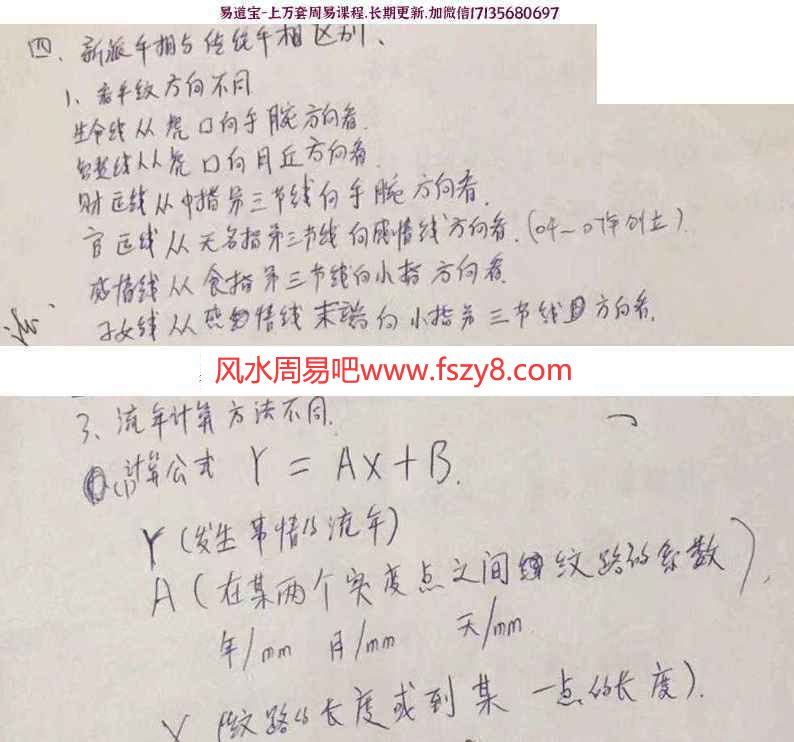 易道宝-上万套周易课程.长期更新.加微信17135680697
四、新派手相与传统手相区别、
1、看手纹方向不同
生命线从虎口向手腕方向看.
智慧线从虎口向月丘方向看.
财运线从中指第三节线向手腕方向看.
官运线从无名指第三节线向感情线方向看.(04-07年创立).
感情线从食指第三节线向小指方向看.
子女线从感情线末端向小指第三节线方向看.
风水周易吧www.fszy8.com
3、流年计算方法不同.
(1)计算公式 Y = AX + B.
Y (发生事情的流年)
A (在某两个实度点之间纹路的系数).
年/mm 月/mm 天/mm
X (纹路的长度或到某一点的长度).